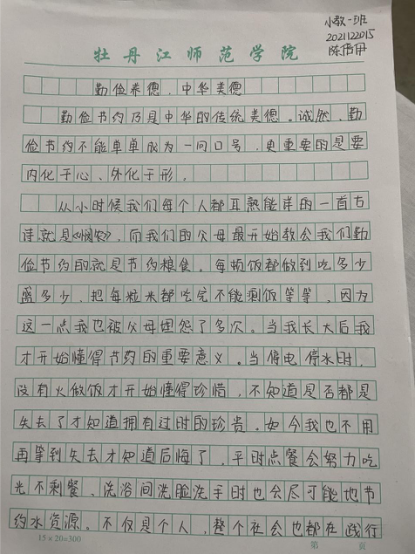 小教一班
2021122015
牡丹江师范学院
勤俭养德，中华美德
勤俭节约乃是中华的传统美德。诚然，勤
俭节约不能单单成为一句口号，更重要的是要
内化于心、外化于形。
从小时候我们每个人都耳熟能详的一首古
诗就是《悯农》，而我们的父母最开始教会我们勤
俭节约的就是节约粮食。每顿饭都做到吃多少
盛多少，把每粒米都吃完不能剩饭等等，因为
这一点我也被父母训了多次。当我长大后我
才开始懂得节约的重要意义。当停电停水时，
没有火做饭才开始懂得珍惜，不知道是否都是
失去了才知道拥有过时的珍贵。如今我也不用
再等到失去才知道后悔了，平时点餐会努力吃
光不剩餐，洗浴间洗脸洗手时也会尽可能地节
约水资源。不仅是个人，整个社会也都在践行
15×20=300 第 页